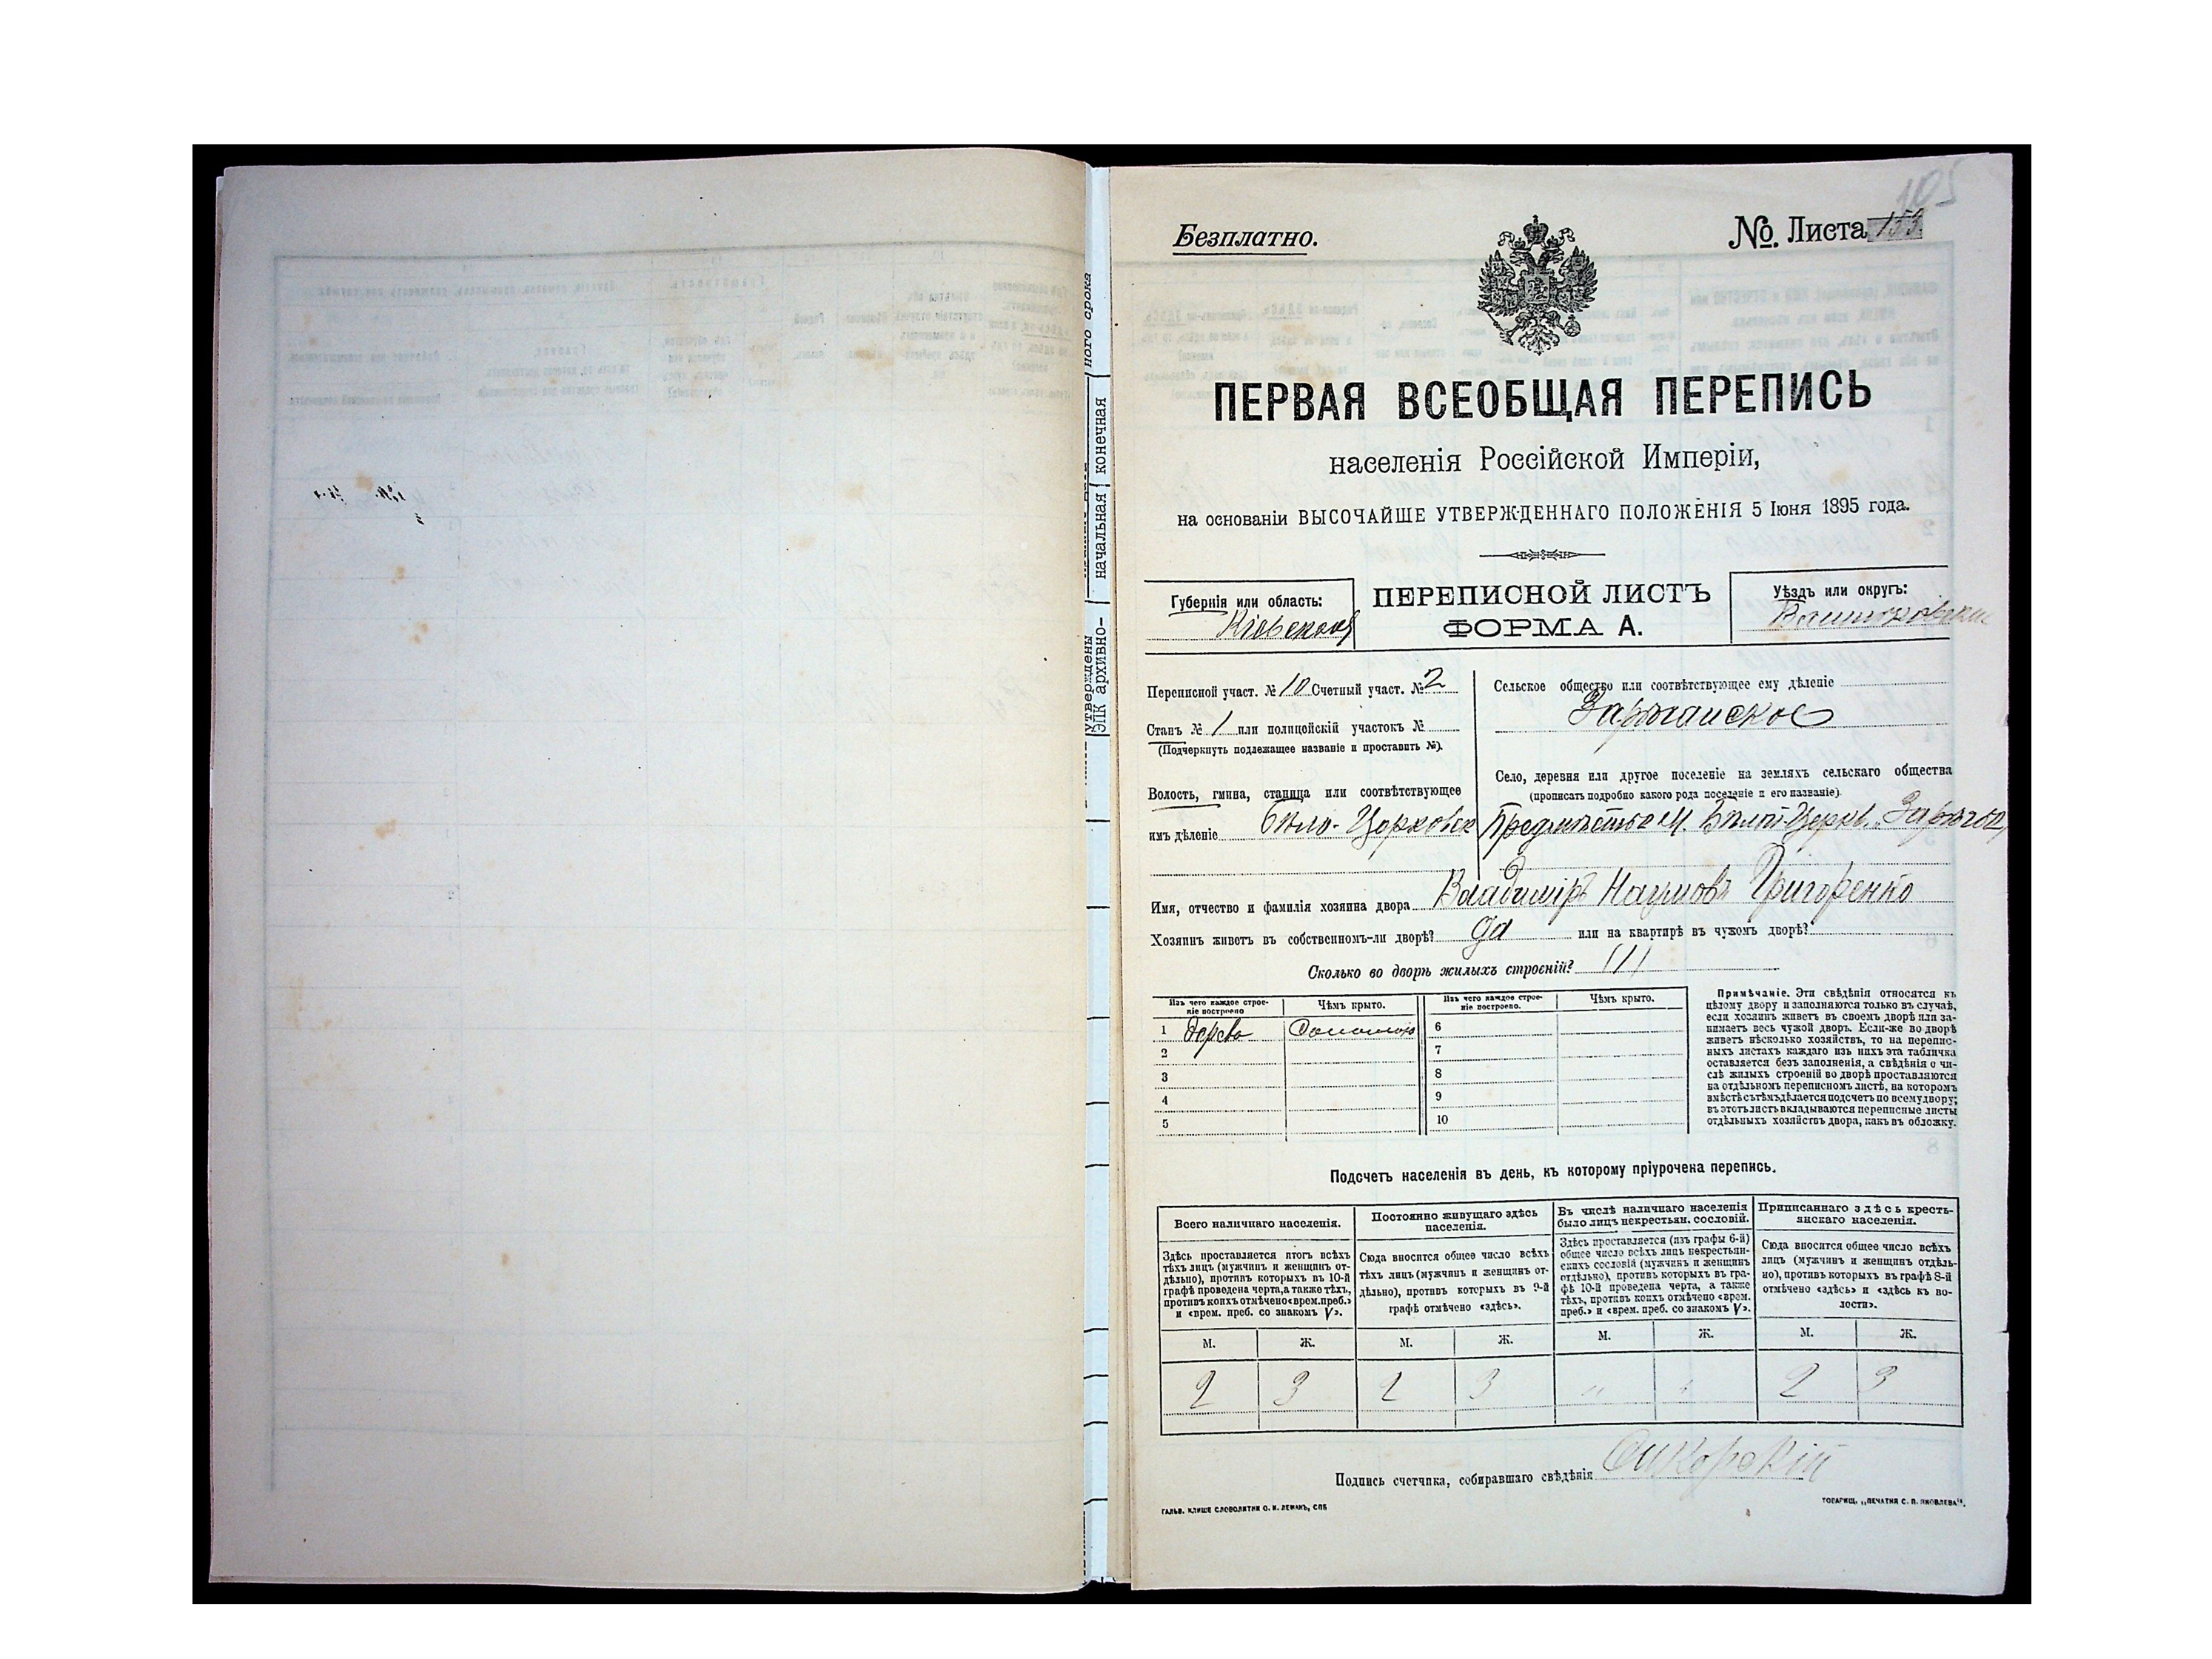 105
Безплатно.
№. Листа 153
ПЕРВАЯ ВСЕОБЩАЯ ПЕРЕПИСЬ
населенія Россійской Имперіи,
на основаніи ВЫСОЧАЙШЕ УТВЕРЖДЕННАГО ПОЛОЖЕНІЯ 5 Іюня 1895 года.
Губернія или область:
Кіевская
ПЕРЕПИСНОЙ ЛИСТЪ
ФОРМА А.
Уѣздъ или округъ:
Переписной участ. № 10 Счетный участ. № 2
Станъ № 1 или полицейскій участокъ №
(Подчеркнуть подлежащее названіе и проставить №).
Волость, гмина, станица или соотвѣтствующее
имъ дѣленіе Бѣло-Церковск
Сельское общество или соотвѣтствующее ему дѣленіе
Зарѣчанское
Село, деревня или другое поселеніе на земляхъ сельскаго общества
(прописать подробно какого рода поселеніе и его названіе)
Предмѣстье М. Бѣлой-Церкв.
Имя, отчество и фамилія хозяина двора Владиміръ Наумовъ Григоренко
Хозяинъ живетъ въ собственномъ-ли дворѣ? да или на квартирѣ въ чужомъ дворѣ?
Сколько во дворѣ жилыхъ строеній? /1/
Изъ чего каждое строеніе построено
Чѣмъ крыто.
Изъ чего каждое строеніе построено.
Чѣмъ крыто.
1 дерева Соломою 6
2 7
3 8
4 9
5 10
Примѣчаніе. Эти свѣдѣнія относятся къ
цѣлому двору и заполняются только въ случаѣ,
если хозяинъ живетъ въ своемъ дворѣ или за-
нимаетъ весь чужой дворъ. Если-же во дворѣ
живетъ нѣсколько хозяйствъ, то на перепис-
ныхъ листахъ каждаго изъ нихъ эта табличка
оставляется безъ заполненія, а свѣдѣнія о чи-
слѣ жилыхъ строеній во дворѣ проставляются
на отдѣльномъ переписномъ листѣ, на которомъ
вмѣстѣ съ тѣмъ дѣлается подсчетъ по всему двору;
въ этотъ листъ вкладываются переписные листы
отдѣльныхъ хозяйствъ двора, какъ въ обложку.
Подсчетъ населенія въ день, къ которому пріурочена перепись.
Всего наличнаго населенія.
Здѣсь проставляется итогъ всѣхъ
тѣхъ лицъ (мужчинъ и женщинъ от-
дѣльно), противъ которыхъ въ 10-й
графѣ проведена черта, а также тѣхъ,
противъ коихъ отмѣчено «врем. преб.»
и «врем. преб. со знакомъ V».
Постоянно живущаго здѣсь
населенія.
Сюда вносится общее число всѣхъ
тѣхъ лицъ (мужчинъ и женщинъ от-
дѣльно), противъ которыхъ въ 9-й
графѣ отмѣчено «здѣсь».
Въ числѣ наличнаго населенія
было лицъ некрестьян. сословій.
Здѣсь проставляется (изъ графы 6-й)
общее число всѣхъ лицъ некрестьян-
скихъ сословій (мужчинъ и женщинъ
отдѣльно), противъ которыхъ въ гра-
фѣ 10-й проведена черта, а также
тѣхъ, противъ коихъ отмѣчено «врем.
преб.» и «врем. преб. со знакомъ V».
Приписаннаго здѣсь кресть-
янскаго населенія.
Сюда вносится общее число всѣхъ
лицъ (мужчинъ и женщинъ отдѣль-
но), противъ которыхъ въ графѣ 8-й
отмѣчено «здѣсь» и «здѣсь къ во-
лости».
М. Ж. М. Ж. М. Ж. М. Ж.
2 3 2 3 " " 2 3
Подпись счетчика, собиравшаго свѣдѣнія Сикорскій
ГАЛЬВ. КЛИШЕ СЛОВОЛИТНИ О. И. ЛЕМАНЪ, СПБ
ТОВАРИЩ. „ПЕЧАТНЯ С. П. ЯКОВЛЕВА".
ного срока
начальная конечная
утверждены
ЭПК архивно-